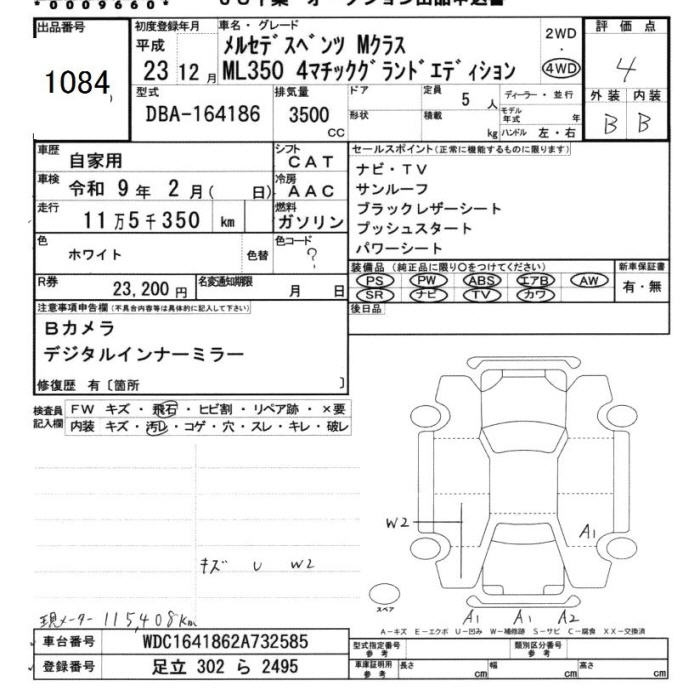 *0009660*
出品番号
1084
初度登録年月
平成
23 12 月
車名・グレード
メルセデスベンツ Mクラス
ML350 4マチックグランドエディション
2WD
・
4WD
評価点
4
外装 内装
B B
型式
DBA-164186
排気量
3500
CC
ドア
形状
定員
5 人
積載
kg
ディーラー・並行
モデル年式 年
ハンドル 左・右
車歴
自家用
シフト
CAT
車検
令和 9 年 2 月( 日)
冷房
AAC
走行
11 万 5 千 350 km
燃料
ガソリン
色
ホワイト
色替
色コード
?
R券
23,200 円
名変通知期限
月 日
セールスポイント(正常に機能するものに限ります)
ナビ・TV
サンルーフ
ブラックレザーシート
プッシュスタート
パワーシート
装備品(純正品に限り○をつけてください)
PS PW ABS エアB AW
SR ナビ TV カワ
新車保証書
有・無
後日品
注意事項申告欄(不具合内容等は具体的に記入して下さい)
Bカメラ
デジタルインナーミラー
修復歴 有〔箇所 〕
検査員記入欄
FW キズ・飛石・ヒビ割・リペア跡・×要
内装 キズ・汚レ・コゲ・穴・スレ・キレ・破レ
W2
A1
キズ U W2
スペア
A1 A1 A2
現メーター 115,408km
A-キズ E-エクボ U-凹み W-補修跡 S-サビ C-腐食 XX-交換済
車台番号
WDC1641862A732585
登録番号
足立 302 ら 2495
型式指定番号
参考
類別区分番号
参考
車庫証明用
参考
長さ cm
幅 cm
高さ cm